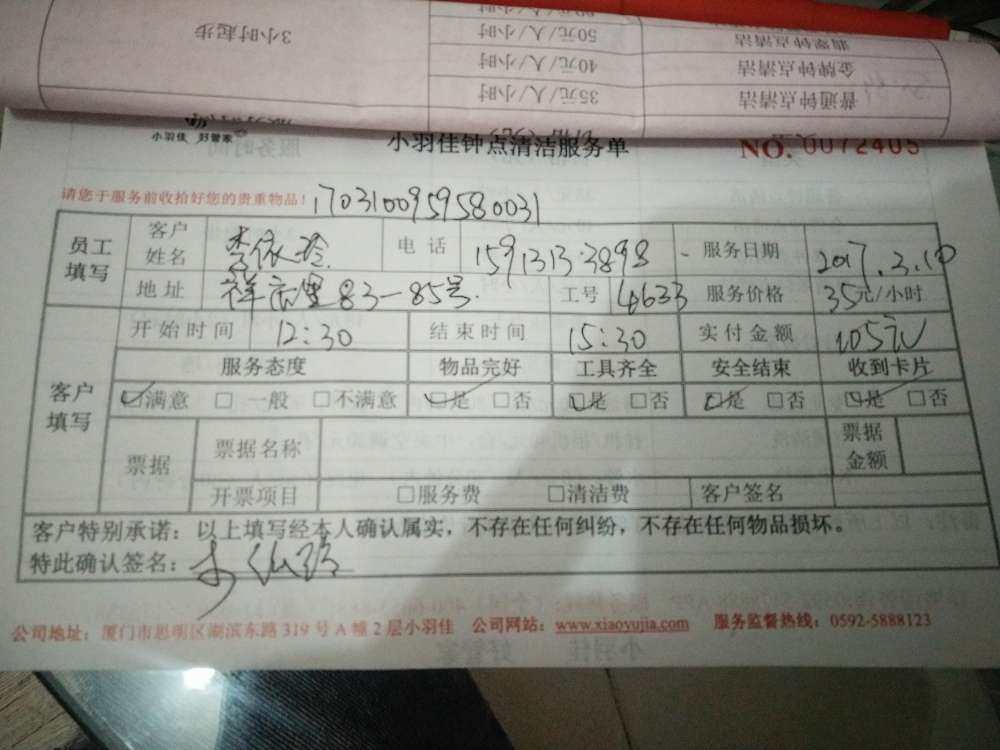 3小时起步
50元/人/小时
翡翠钟点清洁
40元/人/小时
金牌钟点清洁
35元/人/小时
普通钟点清洁
小羽佳 好管家
小羽佳钟点清洁服务单
NO. 0072405
请您于服务前收拾好您的贵重物品！ 1703100959580031
员工填写 客户姓名 李依玲 电话 15913133898 服务日期 2017.3.10
地址 83-85号 工号 4633 服务价格 35元/小时
客户填写 开始时间 12:30 结束时间 15:30 实付金额 105元
服务态度 物品完好 工具齐全 安全结束 收到卡片
☑满意 □一般 □不满意 ☑是 □否 ☑是 □否 ☑是 □否 ☑是 □否
票据 票据名称 票据金额
开票项目 □服务费 □清洁费 客户签名
客户特别承诺：以上填写经本人确认属实，不存在任何纠纷，不存在任何物品损坏。
特此确认签名：
公司地址：厦门市思明区湖滨东路319号A幢2层小羽佳 公司网站：www.xiaoyujia.com 服务监督热线：0592-5888123